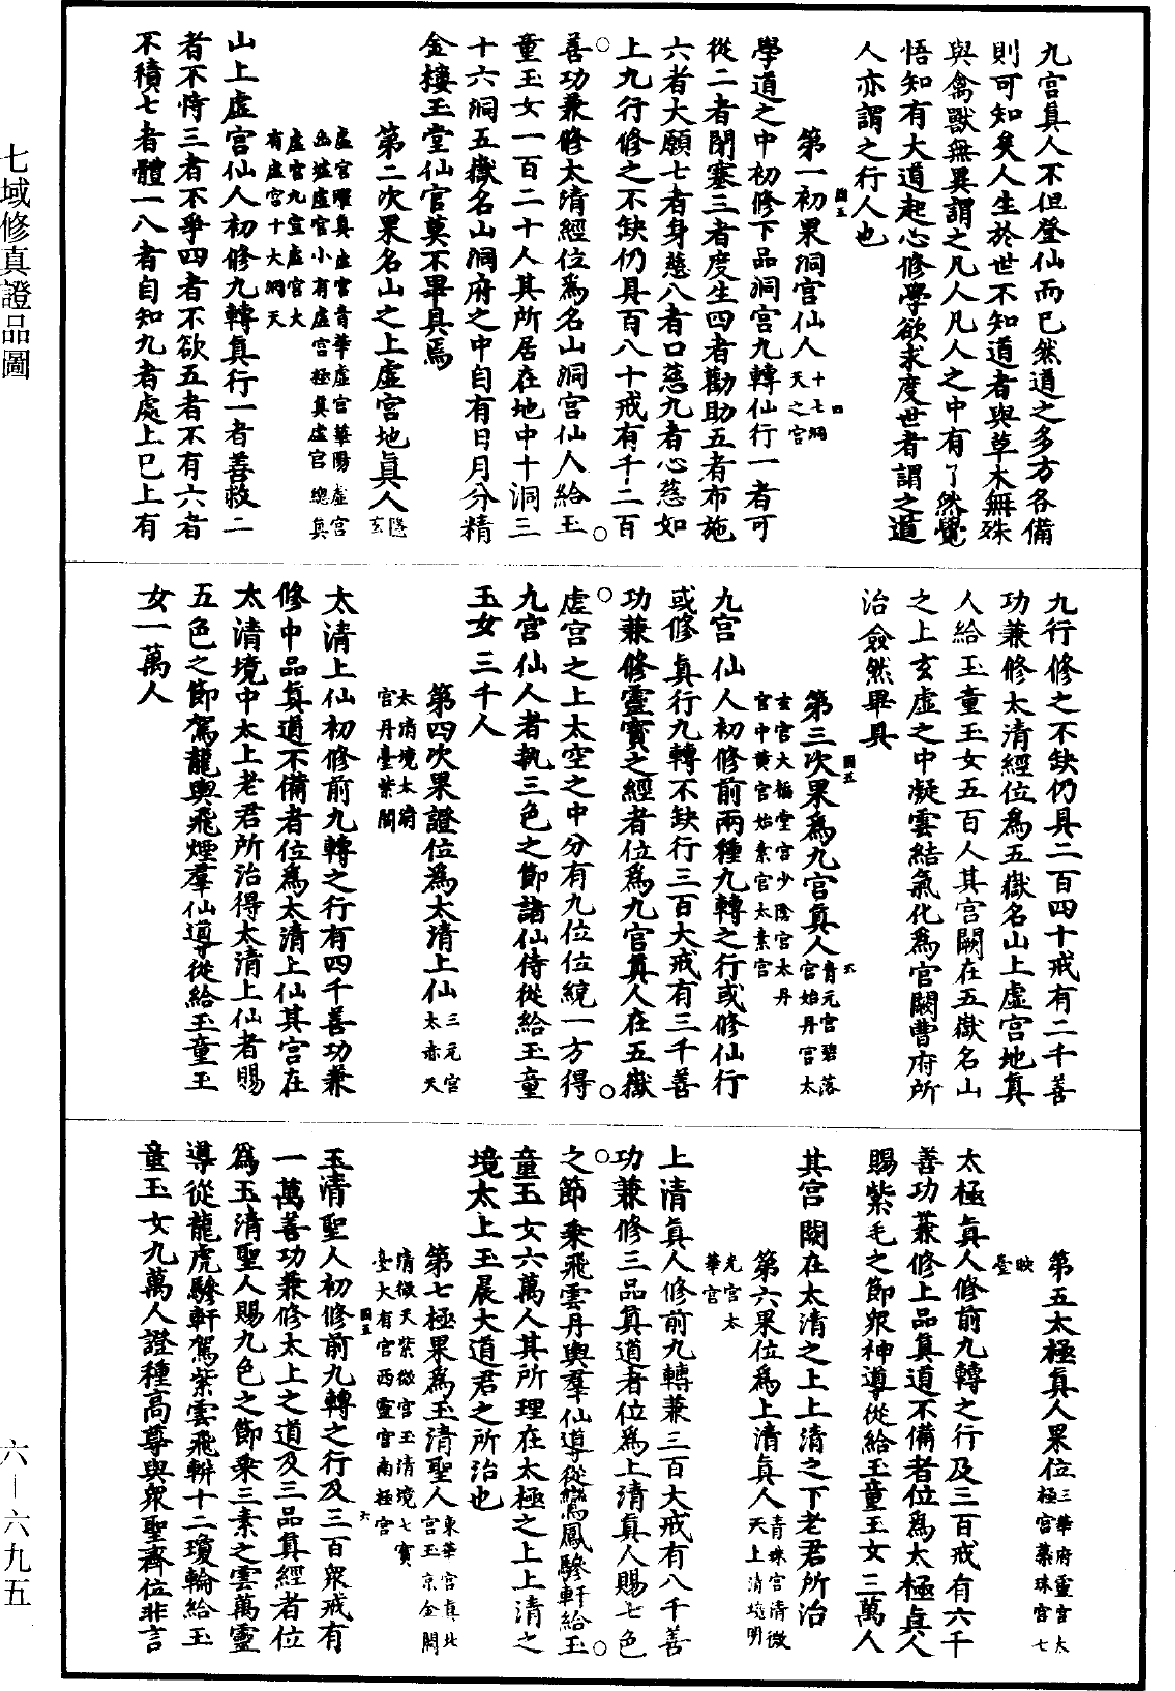 九宮真人不但登仙而已然道之多方各備
則可知矣人生於世不知道者與草木無殊
與禽獸無異謂之凡人凡人之中有了然覺
悟知有大道起心修學欲求度世者謂之道
人亦謂之行人也
第一初果洞宮仙人十七洞天之宮
學道之中初修下品洞宮九轉仙行一者可
從二者閉塞三者度生四者勸助五者布施
六者大願七者身慈八者口慈九者心慈如
上九行修之不缺仍具百八十戒有千二百
善功兼修太清經位爲名山洞宮仙人給玉
童玉女一百二十人其所居在地中十洞三
十六洞五嶽名山洞府之中自有日月分精
金樓玉堂仙官莫不畢具焉
第二次果名山之上虛宮地真人隱玄
虛宮曜真虛宮青華虛宮華陽虛宮
幽墟虛宮小有虛宮極真虛宮總真
虛宮九宣虛宮大
有虛宮十大洞天
山上虛宮仙人初修九轉真行一者善救二
者不恃三者不爭四者不欲五者不有六者
不積七者體一八者自知九者處上已上有
九行修之不缺仍具二百四十戒有二千善
功兼修太清經位爲五嶽名山上虛宮地真
人給玉童玉女五百人其宮闕在五嶽名山
之上玄虛之中凝雲結氣化爲宮闕曹府所
治僉然畢具
第三次果爲九宮真人青元宮碧落宮始丹宮太
玄宮大極堂宮少陰宮太丹
宮中黃宮始素宮太素宮
九宮仙人初修前兩種九轉之行或修仙行
或修真行九轉不缺行三百大戒有三千善
功兼修靈寶之經者位爲九宮真人在五嶽
虛宮之上太空之中分有九位位統一方得
九宮仙人者執三色之節諸仙侍從給玉童
玉女三千人
第四次果證位爲太清上仙三元宮太赤天
太清境太
宮丹臺紫闕
太清上仙初修前九轉之行有四千善功兼
修中品真道不備者位爲太清上仙其宮在
太清境中太上老君所治得太清上仙者賜
五色之節駕龍輿飛煙羣仙導從給玉童玉
女一萬人
第五太極真人果位三華府靈宮太極宮蘂珠宮七
映
臺
太極真人修前九轉之行及三百戒有六千
善功兼修上品真道不備者位爲太極真人
賜紫毛之節衆神導從給玉童玉女三萬人
其宮闕在太清之上上清之下老君所治
第六果位爲上清真人青珠宮清微天上清境明
光宮太
華宮
上清真人修前九轉兼三百大戒有八千善
功兼修三品真道者位爲上清真人賜七色
之節乘飛雲丹輿羣仙導從鸞鳳驂軒給玉
童玉女六萬人其所理在太極之上上清之
境太上玉晨大道君之所治也
第七極果爲玉清聖人東華宮真北宮玉京金闕
清微天紫微宮玉清境七寶
臺大有宮西靈宮南極宮
玉清聖人初修前九轉之行及三百衆戒有
一萬善功兼修太上之道及三品真經者位
爲玉清聖人賜九色之節乘三素之雲萬靈
導從龍虎驂軒駕紫雲飛軿十二瓊輪給玉
童玉女九萬人證種高尊與衆聖齊位非言
七域修真證品圖
六—六九五